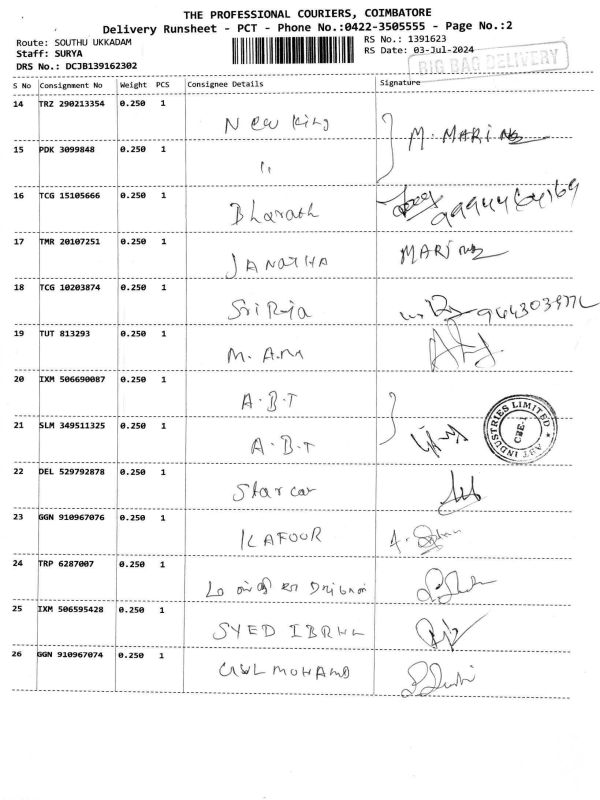 THE PROFESSIONAL COURIERS, COIMBATORE
Delivery Runsheet - PCT - Phone No.:0422-3505555 - Page No.:2
Route: SOUTHU UKKADAM
RS No.: 1391623
Staff: SURYA
RS Date: 03-Jul-2024
DRS No.: DCJB139162302
BIG BAG DELIVERY
S No Consignment No Weight PCS Consignee Details Signature
14 TRZ 290213354 0.250 1
New King
M. MARI
15 PDK 3099848 0.250 1
"
16 TCG 15105666 0.250 1
Bharath
17 TMR 20107251 0.250 1
JANATHA MARI
18 TCG 10203874 0.250 1
Sri Raja
19 TUT 813293 0.250 1
M. A.M
20 IXM 506690087 0.250 1
A.B.T
21 SLM 349511325 0.250 1
A.B.T
ABT INDUSTRIES LIMITED
CBE-1
22 DEL 529792878 0.250 1
Star car
23 GGN 910967076 0.250 1
KAFOOR
24 TRP 6287007 0.250 1
25 IXM 506595428 0.250 1
SYED
26 GGN 910967074 0.250 1